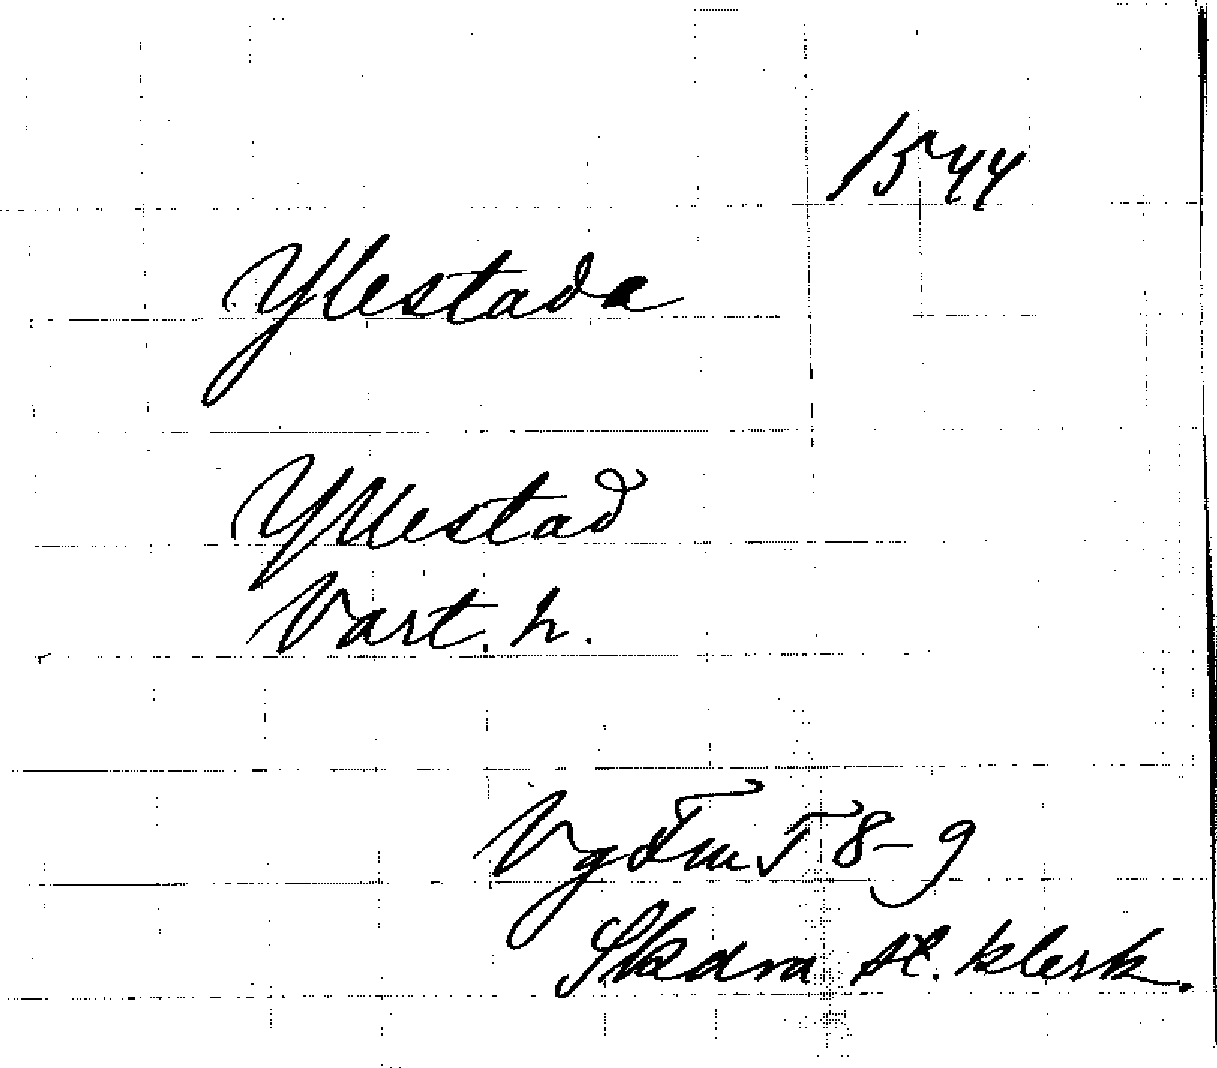 1544
Ylestada
Yllestad
Vart. h.
VgFmT 8-9
Skara st. klerk.